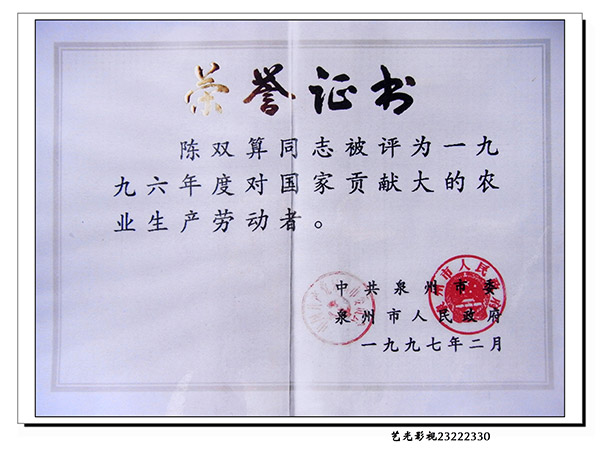 荣誉证书
陈双算同志被评为一九
九六年度对国家贡献大的农
业生产劳动者。
中共泉州市委
泉州市人民政府
泉州市人民政府
一九九七年二月
艺光影视23222330